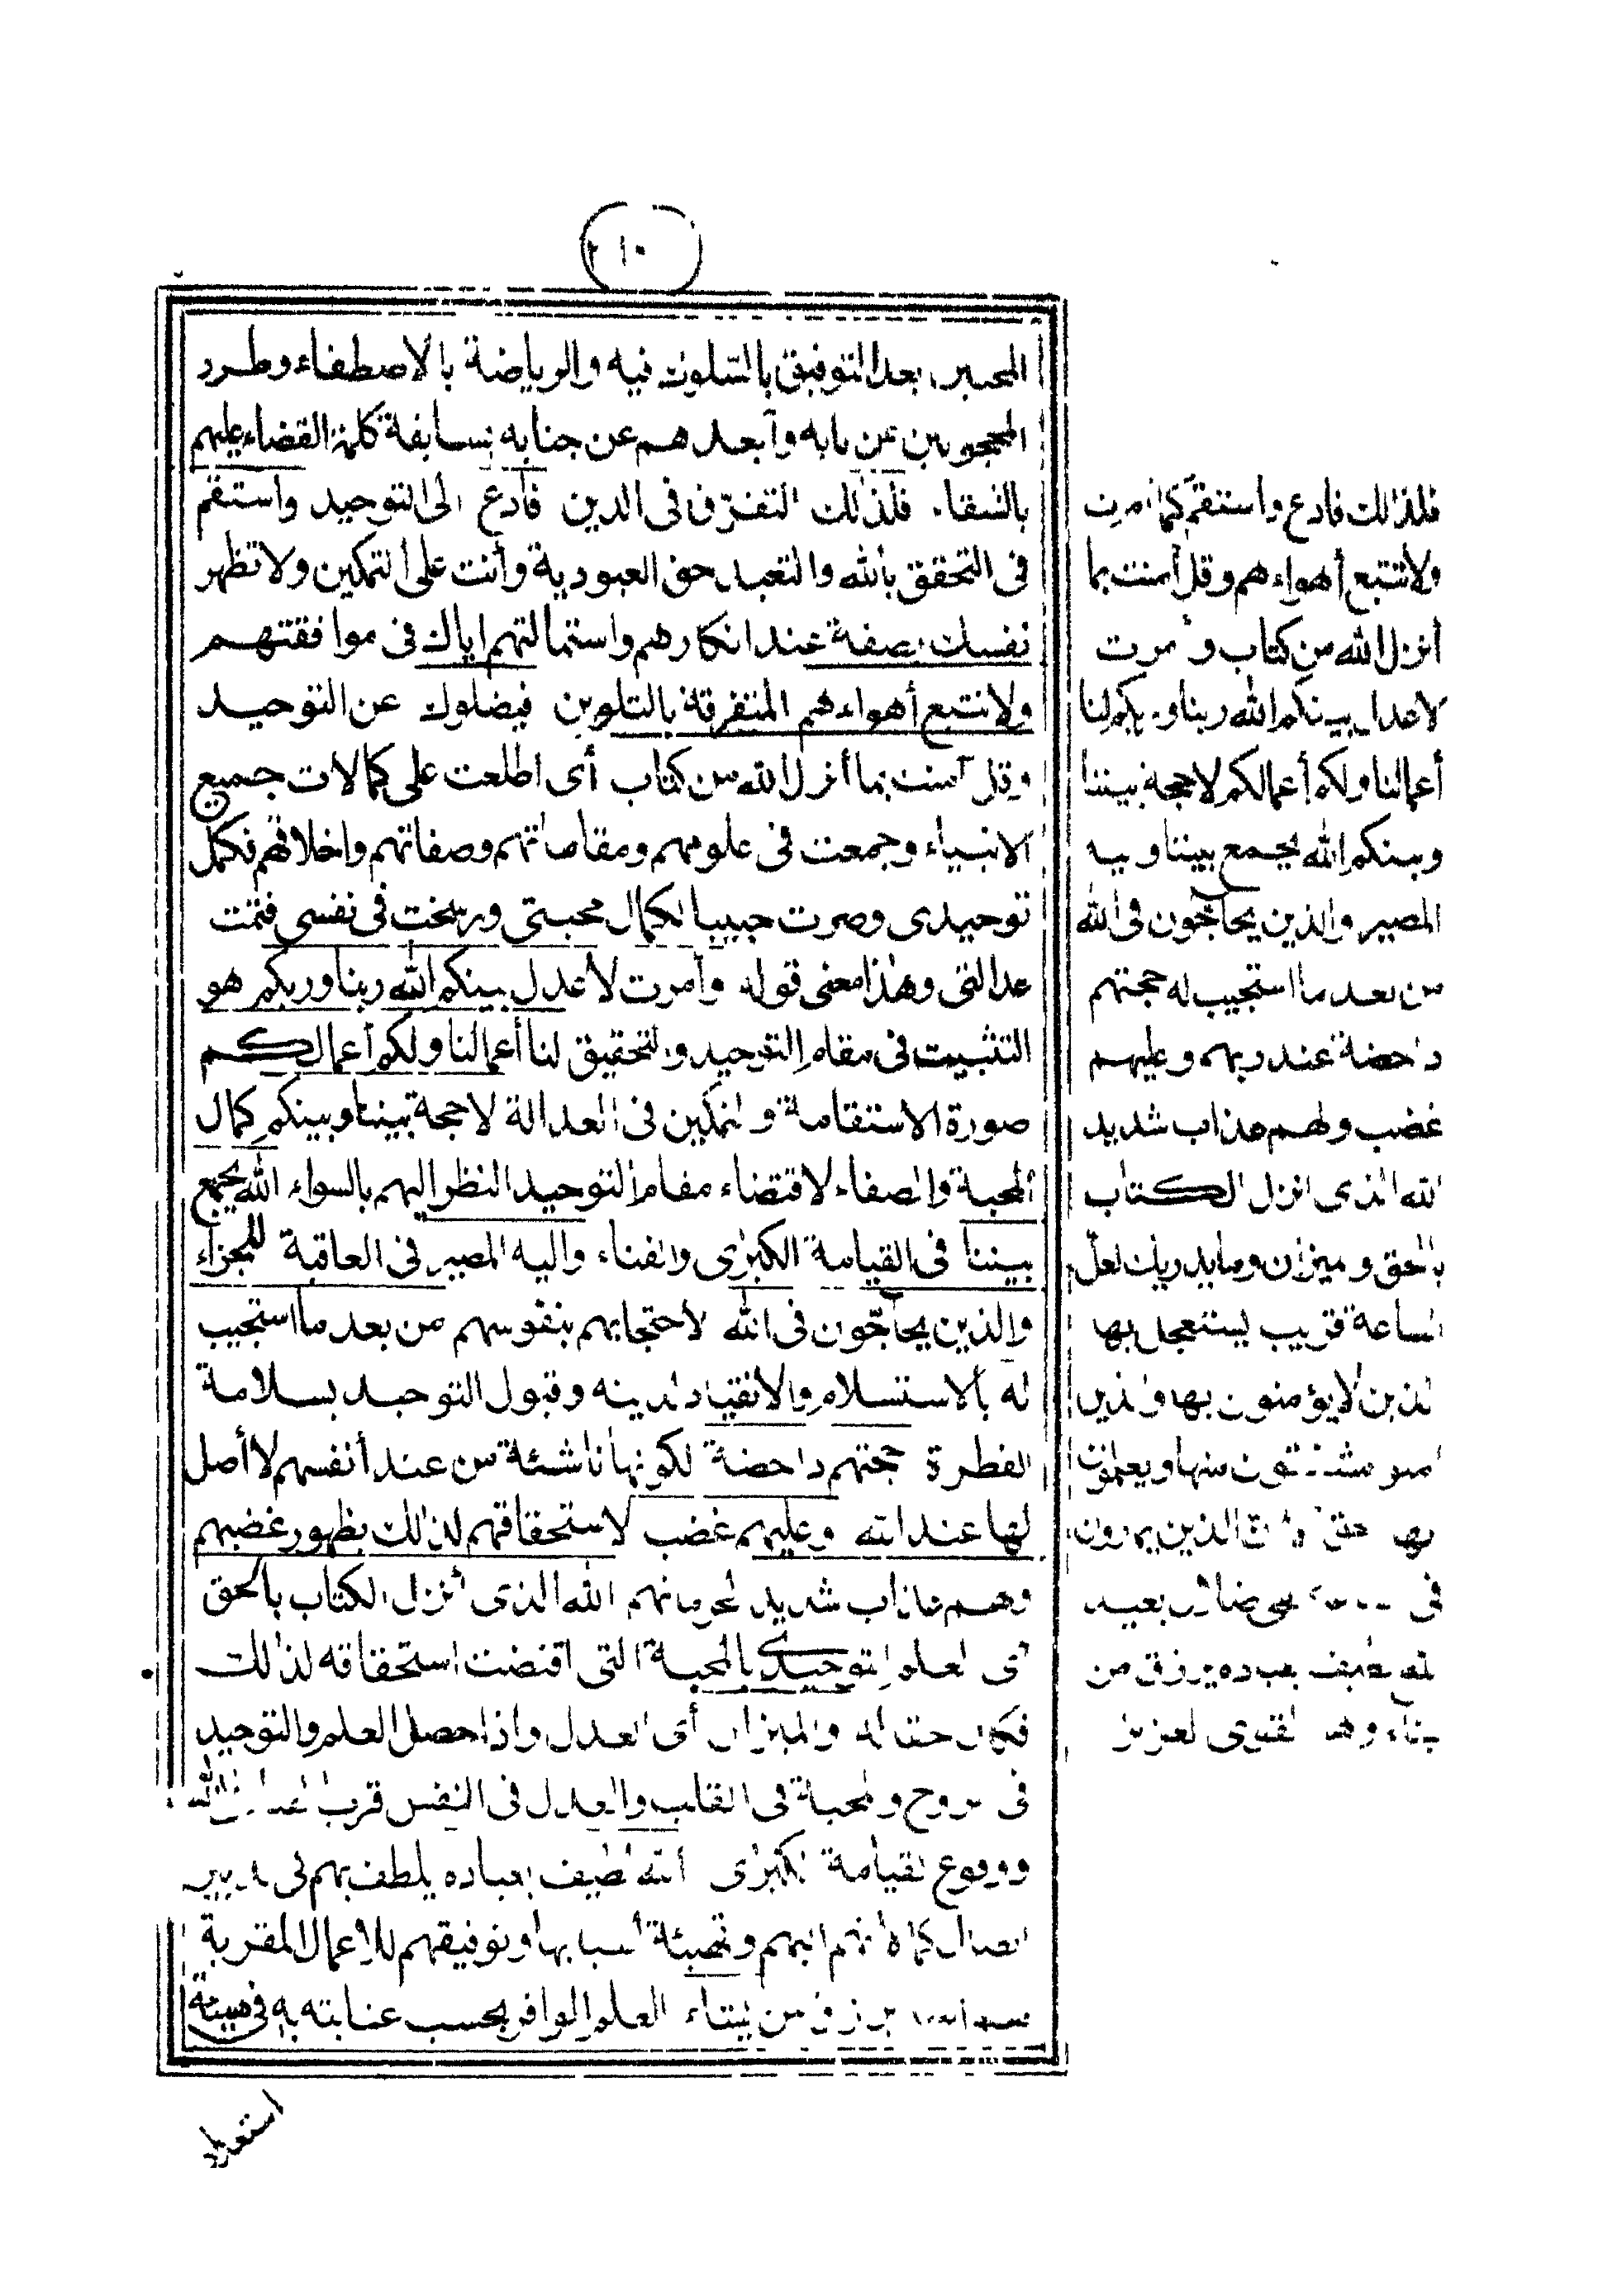 ٢١٠
المحبين بعد التوفيق بالسلوك فيه والرياضة بالاصطفاء وطرد
المحجوبين عن بابه وأبعدهم عن جنابه بسابقة كلمة القضاء عليهم
بالشقاء فلذلك التفرق فى الدين فادع الى التوحيد واستقم
فى التحقق بالله والتعبد حق العبودية وأنت على التمكين ولا تظهر
نفسك بصفة عند انكارهم واستمالتهم اياك فى موافقتهم
ولا تتبع أهواءهم المتفرقة بالتلوين فيضلوك عن التوحيد
وقل آمنت بما أنزل الله من كتاب أى اطلعت على كمالات جميع
الانبياء وجمعت فى علومهم ومقاماتهم وصفاتهم واخلاقهم فكمل
توحيدى وصرت حبيبا لكمال محبتى ورسخت فى نفسى فتمت
عدالتى وهذا معنى قوله وأمرت لأعدل بينكم الله ربنا وربكم هو
التثبيت فى مقام التوحيد والتحقيق لنا أعمالنا ولكم أعمالكم
صورة الاستقامة والتمكين فى العدالة لا حجة بيننا وبينكم كمال
المحبة والصفاء لاقتضاء مقام التوحيد النظر اليهم بالسواء الله يجمع
بيننا فى القيامة الكبرى والفناء واليه المصير فى العاقبة للجزاء
والذين يحاجّون فى الله لاحتجابهم بنفوسهم من بعد ما استجيب
له بالاستسلام والانقياد لدينه وقبول التوحيد بسلامة
الفطرة حجتهم داحضة لكونها ناشئة من عند أنفسهم لا أصل
لها عند الله وعليهم غضب لاستحقاقهم لذلك بظهور غضبهم
ولهم عذاب شديد لحرمانهم الله الذى أنزل الكتاب بالحق
أى لعلم التوحيدى بالمحبة التى اقتضت استحقاقه لذلك
فكان حقا له والميزان أى العدل واذا حصل العلم والتوحيد
فى الروح والمحبة فى القلب والعدل فى النفس قرب الله
ووقوع القيامة الكبرى الله لطيف بعباده يلطف بهم فى تدبير
ايصال كمالاتهم اليهم وتهيئة أسبابها وتوفيقهم للاعمال المقربة
يرزق من يشاء العلم الوافر بحسب عنايته به فى هيئة
استعداد
فلذلك فادع واستقم كما أمرت
ولا تتبع أهواءهم وقل آمنت بما
أنزل الله من كتاب وأمرت
لاعدل بينكم الله ربنا وربكم لنا
أعمالنا ولكم أعمالكم لا حجة بيننا
وبينكم الله يجمع بيننا واليه
المصير والذين يحاجّون فى الله
من بعد ما استجيب له حجتهم
داحضة عند ربهم وعليهم
غضب ولهم عذاب شديد
الله الذى انزل الكتاب
بالحق والميزان وما يدريك لعل
الساعة قريب يستعجل بها
الذين لا يؤمنون بها والذين
آمنوا مشفقون منها ويعلمون
الحق الذين يمارون
فى ضلال بعيد
الله لطيف بعباده يرزق من
يشاء وهو القوى العزيز